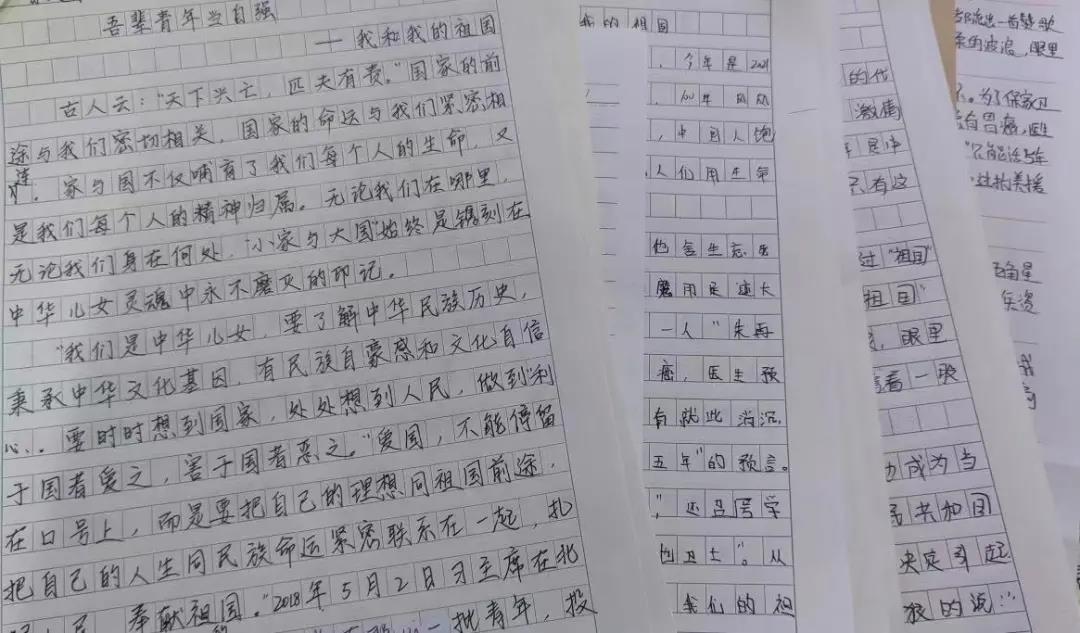 吾辈青年当自强
——我和我的祖国
古人云："天下兴亡，匹夫有责。"国家的前
途与我们密切相关，国家的命运与我们紧密相
连。家与国不仅哺育了我们每个人的生命，又
是我们每个人的精神归属。无论我们在哪里，
无论我们身在何处，"小家与大国"始终是镌刻在
中华儿女灵魂中永不磨灭的印记。
"我们是中华儿女，要了解中华民族历史，
秉承中华文化基因，有民族自豪感和文化自信
心。要时时想到国家，处处想到人民，做到"利
于国者爱之，害于国者恶之。"爱国，不能停留
在口号上，而是要把自己的理想同祖国前途，
把自己的人生同民族命运紧密联系在一起，扎
奉献祖国。"2018年5月2日习主席在北
一批青年，投
我的祖国
，今年是2021
，中国人饱
，人们用生命
他舍生忘死
一人"朱再
癌，医生预
有就此消沉，
五年"的预言。
"，还号召学
的卫士"。从
我们的祖
的代
激情
只有这
过"祖国"
祖国"
，眼里
着一股
成为当
共和国
决定引起
狼的说："
一首赞歌
的波浪，眼里
。为了保家卫
有胃癌，医生
"只能活5年
抗美援
我